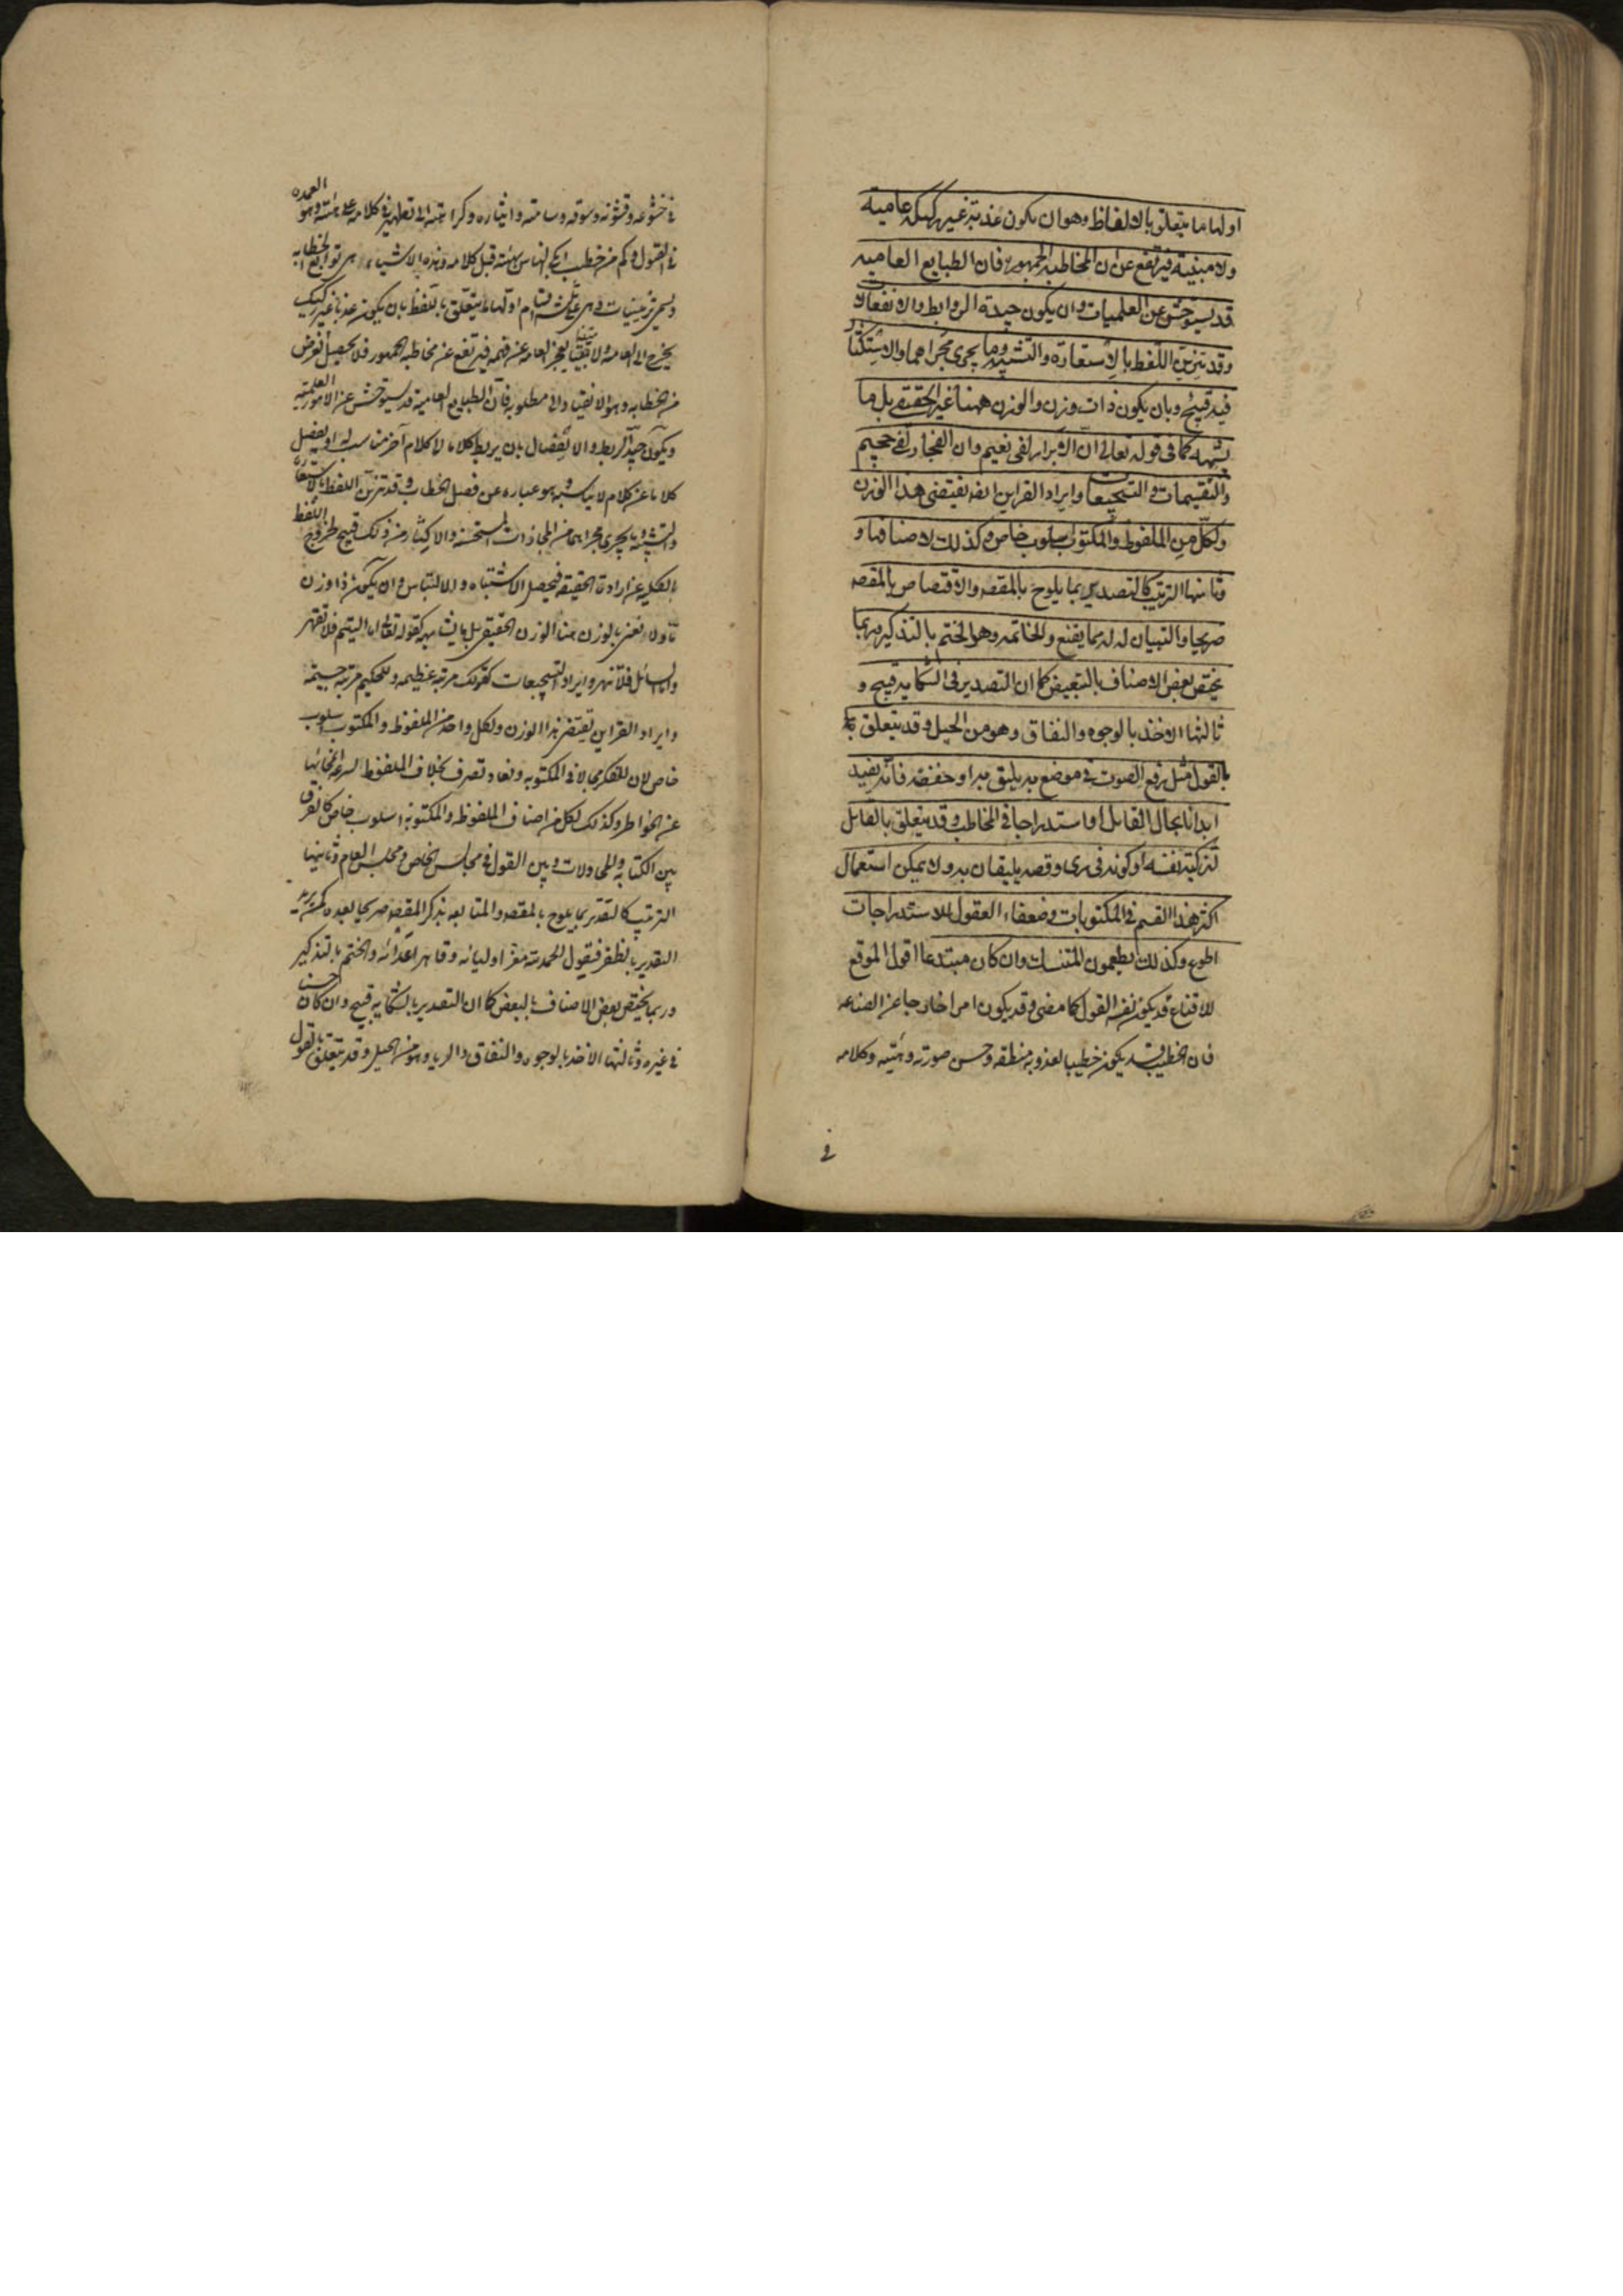 اولها ما يتعلق بالالفاظ وهو ان يكون عذبة غير ركيكه عامية
ولا مبنية فيرتفع عن ان المخاطبه الجمهور فان الطبايع العامية
قد يستوحش عن العلميات وان يكون جيدة الروابط والانفصالات
وقد تزين اللفظ بالاستعارة والتشبيه وما يجرى مجراهما والاستكثار
فيه قبيح وبان يكون ذات وزن والوزن ههنا غير الحقيقى بل ما
يشبهه كما فى قوله تعالى ان الابرار لفى نعيم وان الفجار لفى جحيم
والتقسيمات والتسجيعات وايراد القراين انه يقتضى هذا الوزن
ولكل من الملفوظ والمكتوب اسلوب خاص وكذلك لاصنافها و
وثانيها الترتيب كالتصدير بما يلوح بالمقصد والاقتصاص بالمقصد
صريحا والتبيان له بما يقنع والخاتمه وهو الختم بالتذكير وربما
يختص بعض الاصناف بالتبعيض كما ان التصدير فى الشكاية قبيح و
ثالثها الاخذ بالوجوه والنفاق وهو من الحيل وقد يتعلق
بالقول مثل رفع الصوت فى موضع يليق به او خفضه فانه يفيد
ايذانا بحال القايل او استدراجا فى المخاطب وقد يتعلق بالقايل
لتزكية نفسه او كونه فى زى وقصه يليقان به ولا يمكن استعمال
اكثر هذا القسم فى المكتوبات وضعفاء العقول للاستدراجات
اطوع وكذلك يطيعون المتنسك وان كان مبتدعا اقول الموقع
للاقناع قد يكون نفس القول كما مضى وقد يكون امرا خارجا عن الصناعه
فان الخطيب قد يكون خطيبا لعذوبة منطقه وحسن صورته وهيئته وكلامه
فى
فى خشوعه وسوقه
فى القول وكم من خطيب قبل كلامه وهذه الاشياء هى توابع الخطابه
ويسمى تزيينات وهى على ثلثه اقسام اولها ما يتعلق باللفظ بان يكون عذبا غير ركيك
يخرج الى العامه ولا متينا يعجز العامه عن فهمه فيرتفع عن مخاطبه الجمهور فلا يحصل الغرض
من الخطابه وهو الانقياد الى مطلوبه فان الطبايع العامية قد يستوحش عن الامور العلمية
ويكون جيد الربط والانفصال بان يربط كلاما الى كلام آخر مناسب له او يفصل
كلاما عن كلام لا يناسبه وهو عباره عن فصل الخطاب وقد تزين اللفظ بالاستعارة
والتشبيه وما يجرى مجراهما من المجازات المستحسنه والاكثار من ذلك قبيح لخروج اللفظ
بالكليه عن ارادة الحقيقه فيحصل الاشتباه والالتباس وان يكون ذا وزن
ما ولا نعنى بالوزن هنا الوزن الحقيقى بل ما يشابهه كقوله تعالى اما اليتيم فلا تقهر
واما السائل فلا تنهر وايراد التسجيعات كقولك مرتبه عظيمه وللحكيم مرتبه جسيمه
وايراد القراين يقتضى هذا الوزن ولكل واحد من الملفوظ والمكتوب اسلوب
خاص لان للفكر مجالا فى المكتوبه ونفاد وتصرف بخلاف الملفوظ لسرعه انمحائها
عن الخواطر وكذلك لكل من اصناف الملفوظه والمكتوبه اسلوب خاص كالفرق
بين الكتابه والمحاولات وبين القول فى مجلس الخاص ومجلس العام وثانيها
الترتيب كالتقدير بما يلوح بالمقصد والمتابعه بذكر المقصد صريحا بعده كمن يريد
التقدير بالظفر فيقول الحمد لله معز اوليائه وقاهر اعدائه والختم بالتذكير
وربما يختص بعض الاصناف بالبعض كما ان التصدير بالشكايه قبيح وان كان حسنا
فى غيره وثالثها الاخذ بالوجوه والنفاق والريا وهو من الحيل وقد يتعلق بالقول